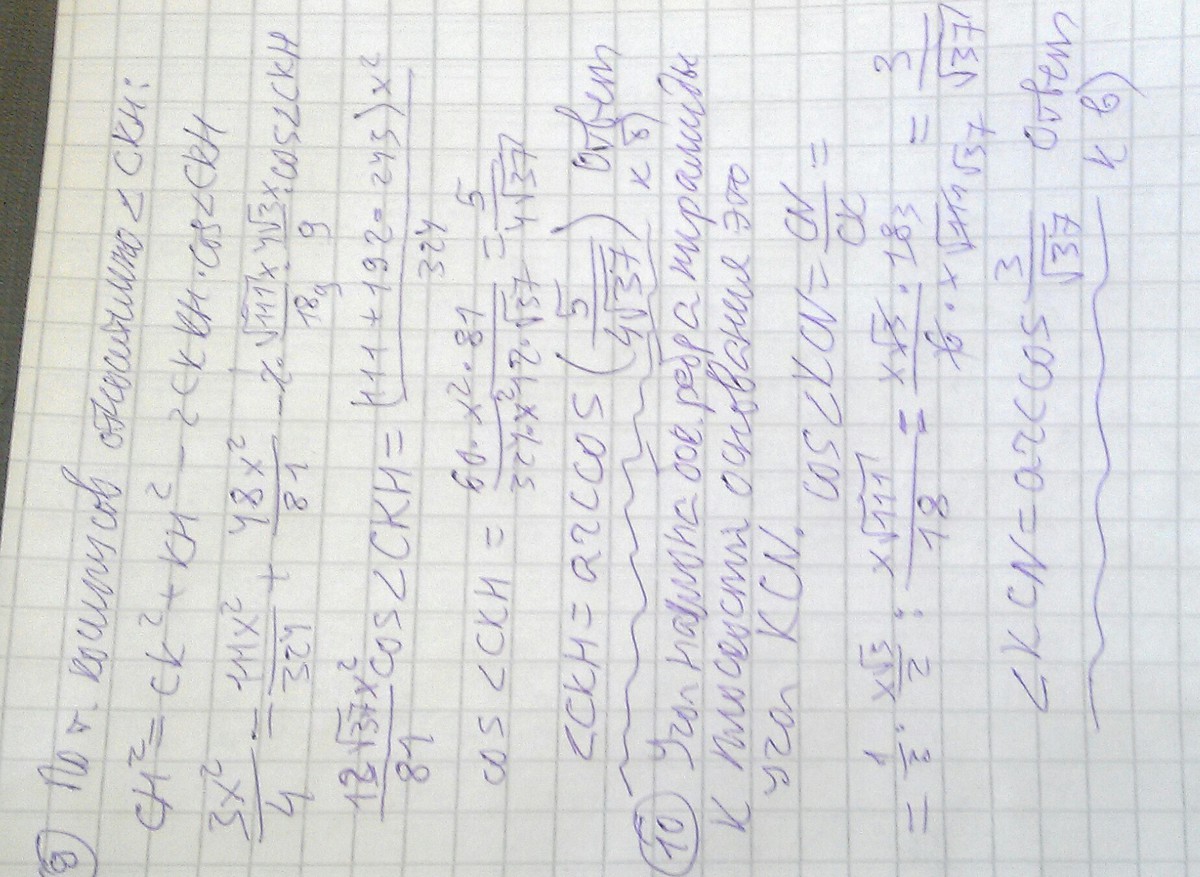 9) По т. косинусов относительно <CKH:
CH² = CK² + KH² - 2CK·KH·cos<CKH
3x²/4 = 111x²/324 + 48x²/81 - 2·x√111/18·x4√3/9·cos<CKH
12√37x²/81 cos<CKH = (111+192-243)x²/324
cos<CKH = 60·x²·81/324·x²12·√37 = 5/4√37
<CKH = arccos(5/4√37) Ответ к б)
10) Угол наклона бок. ребра пирамиды
к плоскости основания это
угол KCN. cos<KCN = CN/CK =
= 1/3 · x√3/2 : x√111/18 = x√3·18 3/6·x√111 √37 = 3/√37
<KCN = arccos 3/√37 Ответ к в)